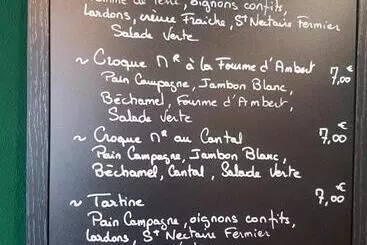 Pomme de Terre, oignons confits,
Lardons, crème Fraîche, St Nectaire Fermier
Salade Verte
~ Croque Mr à la Fourme d'Ambert 7,00 €
Pain Campagne, Jambon Blanc,
Béchamel, Fourme d'Ambert,
Salade Verte
~ Croque Mr au Cantal 7,00 €
Pain Campagne, Jambon Blanc,
Béchamel, Cantal, Salade Verte
~ Tartine 7,00 €
Pain Campagne, oignons confits,
Lardons, St Nectaire Fermier